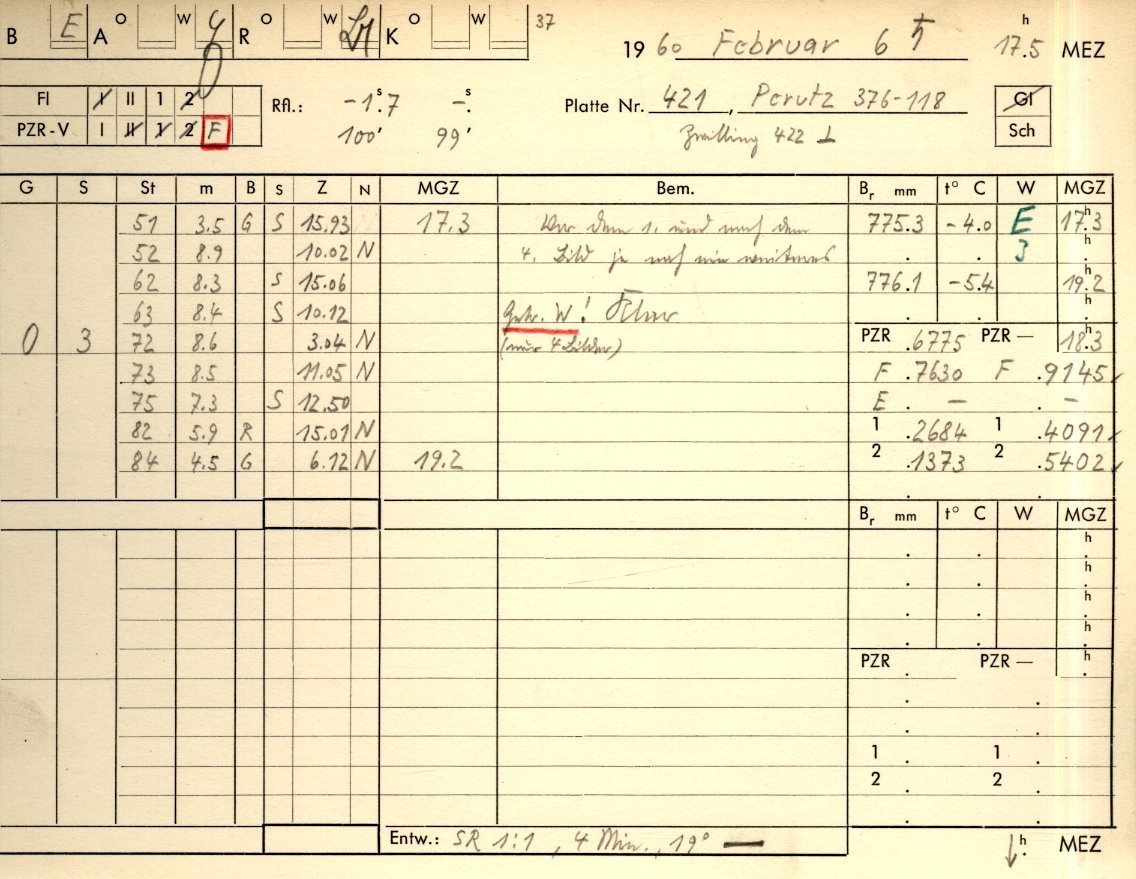 B E A O W R O W K O W 37
19 60 Februar 6 ♄ 17.5 h MEZ
Fl I II 1 2
PZR-V I II 1 2 F
Rfl.: -1.7 s -. s
100' 99'
Platte Nr. 421, Perutz 376-118
Zwilling 422 ⊥
Gl
Sch
G S St m B S Z N MGZ Bem. Br mm t° C W MGZ
51 3.5 G S 15.93 17.3 Vor dem 1. und nach dem 775.3 -4.0 E 17.3 h
52 8.9 10.02 N 4. Bild je noch ein weiteres . . 3 . h
62 8.3 S 15.06 776.1 -5.4 19.2 h
63 8.4 S 10.12 Getr. W! . . . h
0 3 72 8.6 3.04 N (nur 4 Bilder) PZR .6775 PZR — 18.3 h
73 8.5 11.05 N F .7630 F .9145
75 7.3 S 12.50 E . — . —
82 5.9 R 15.01 N 1 .2684 1 .4091
84 4.5 G 6.12 N 19.2 2 .1373 2 .5402
Br mm t° C W MGZ
. . . h
. . . h
. . . h
. . . h
PZR . PZR — . h
1 . 1 .
2 . 2 .
Entw.: SR 1:1, 4 Min., 19° —
h MEZ